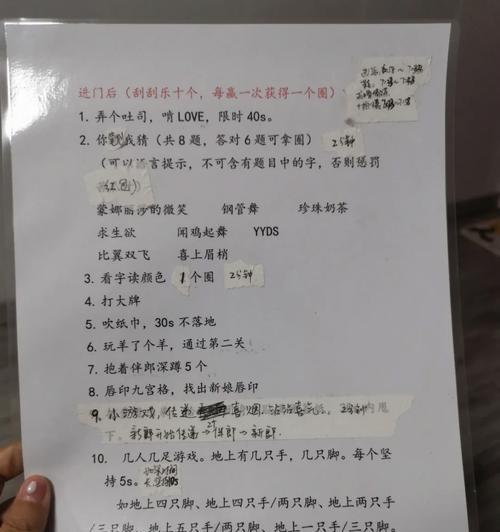 进门后（刮刮乐十个，每赢一次获得一个圈）
1. 弄个吐司，啃LOVE，限时40s。
2. 你 我猜（共8题，答对6题可拿圈） 2分钟
（可以语言提示，不可含有题目中的字，否则惩罚
红包））
蒙娜丽莎的微笑 钢管舞 珍珠奶茶
求生欲 闻鸡起舞 YYDS
比翼双飞 喜上眉梢
3. 看字读颜色 1个圈 2分钟
4. 打大牌
5. 吹纸巾，30s不落地
6. 玩羊了个羊，通过第二关
7. 抱着伴郎深蹲5个
8. 唇印九宫格，找出新娘唇印
9. 小游戏，传递 喜烟，沾沾喜气 2分钟内甩
下。新郎开始传递→2个伴郎→新郎.
10. 几人几足游戏。地上有几只手，几只脚。每个坚
持5s。
如地上四只脚、地上四只手/两只脚、地上两只手
/三只脚、地上五只手/两只脚、地上一只手/一只脚。